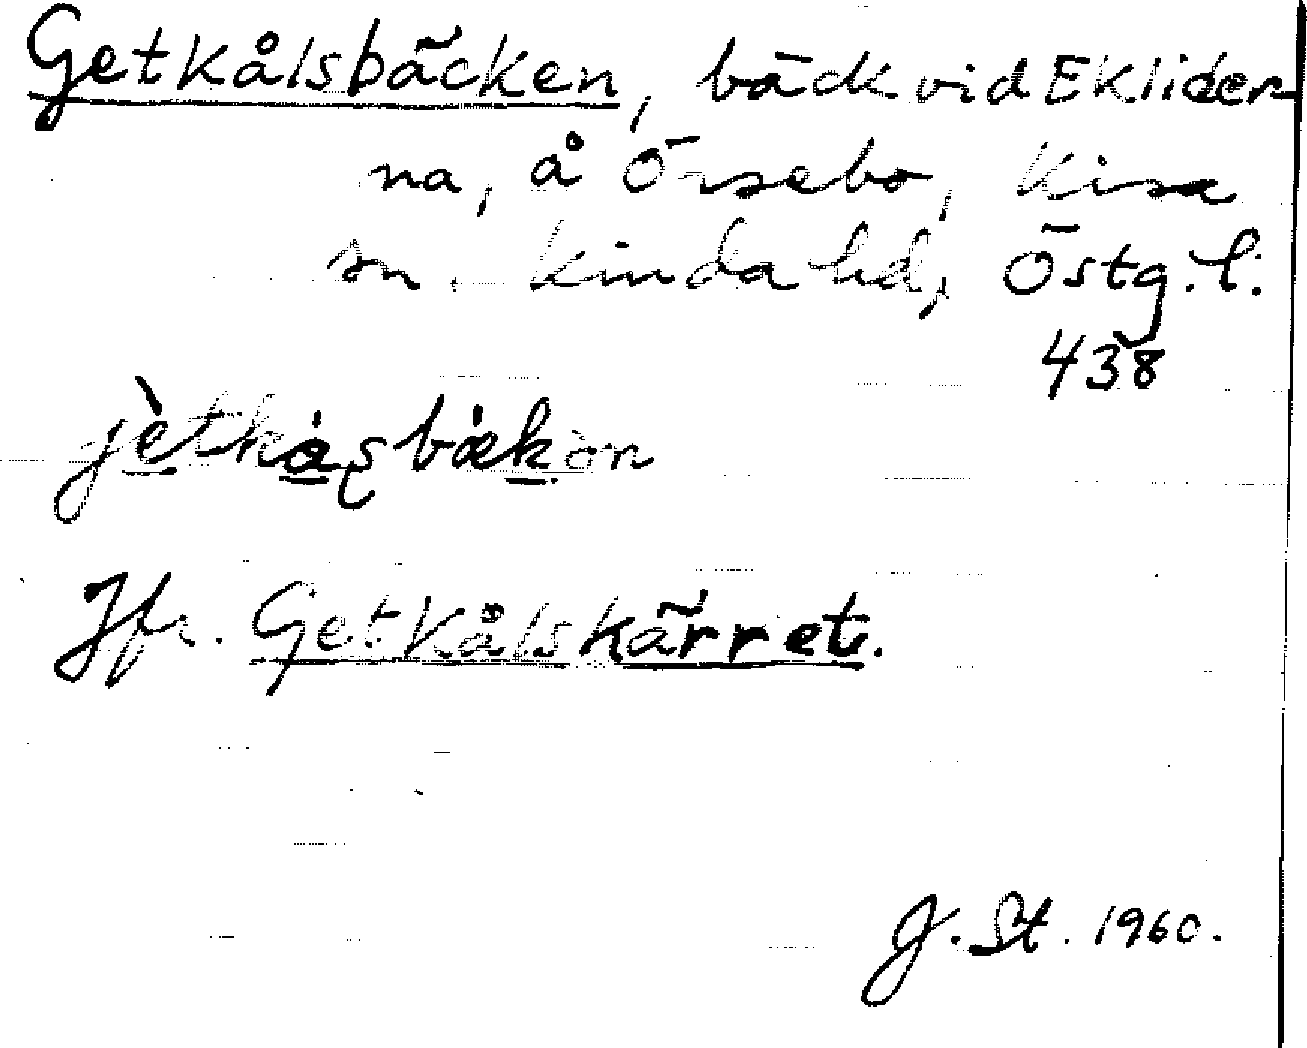 Getkålsbäcken, bäck vid Ekliden
na, å Örsebo, Kisa
sn. Kinda hd, Östg. l.
438
jètkåșbækən
Jfr. Getkålskärret.
J. St. 1960.